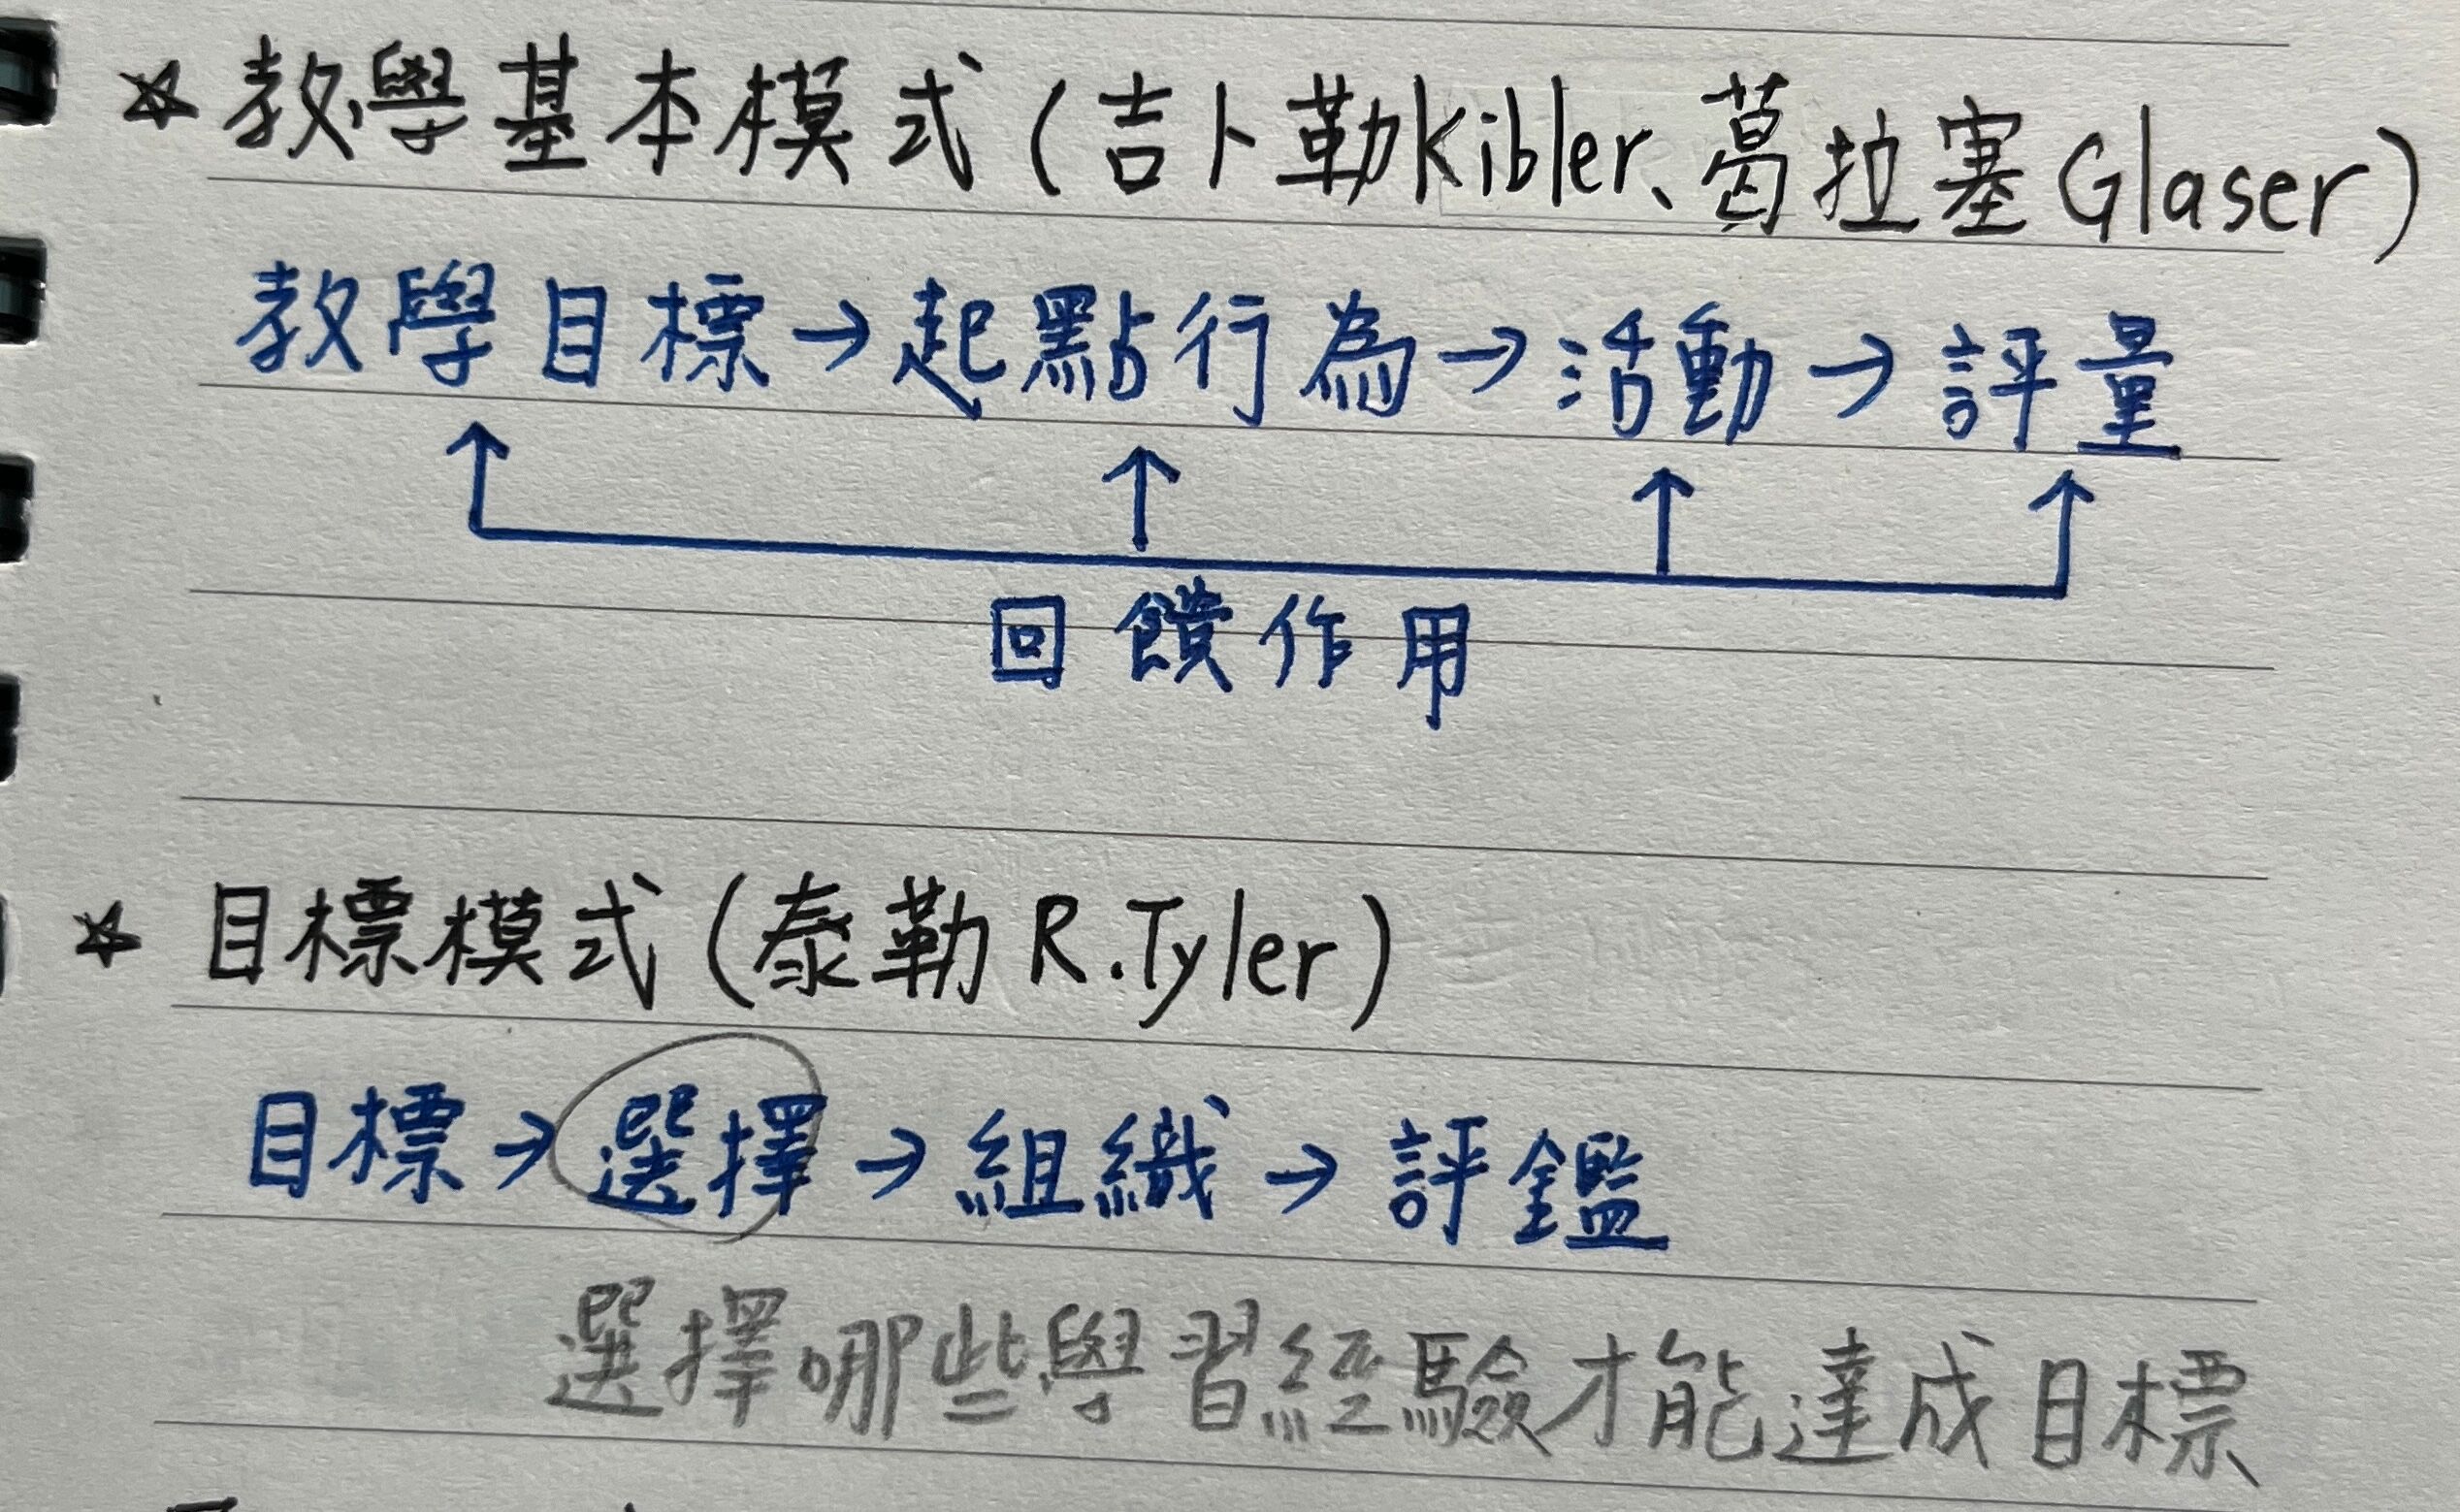 ☆教學基本模式(吉卜勒Kibler、葛拉塞Glaser)
教學目標→起點行為→活動→評量
回饋作用
☆目標模式(泰勒R.Tyler)
目標→選擇→組織→評鑑
選擇哪些學習經驗才能達成目標